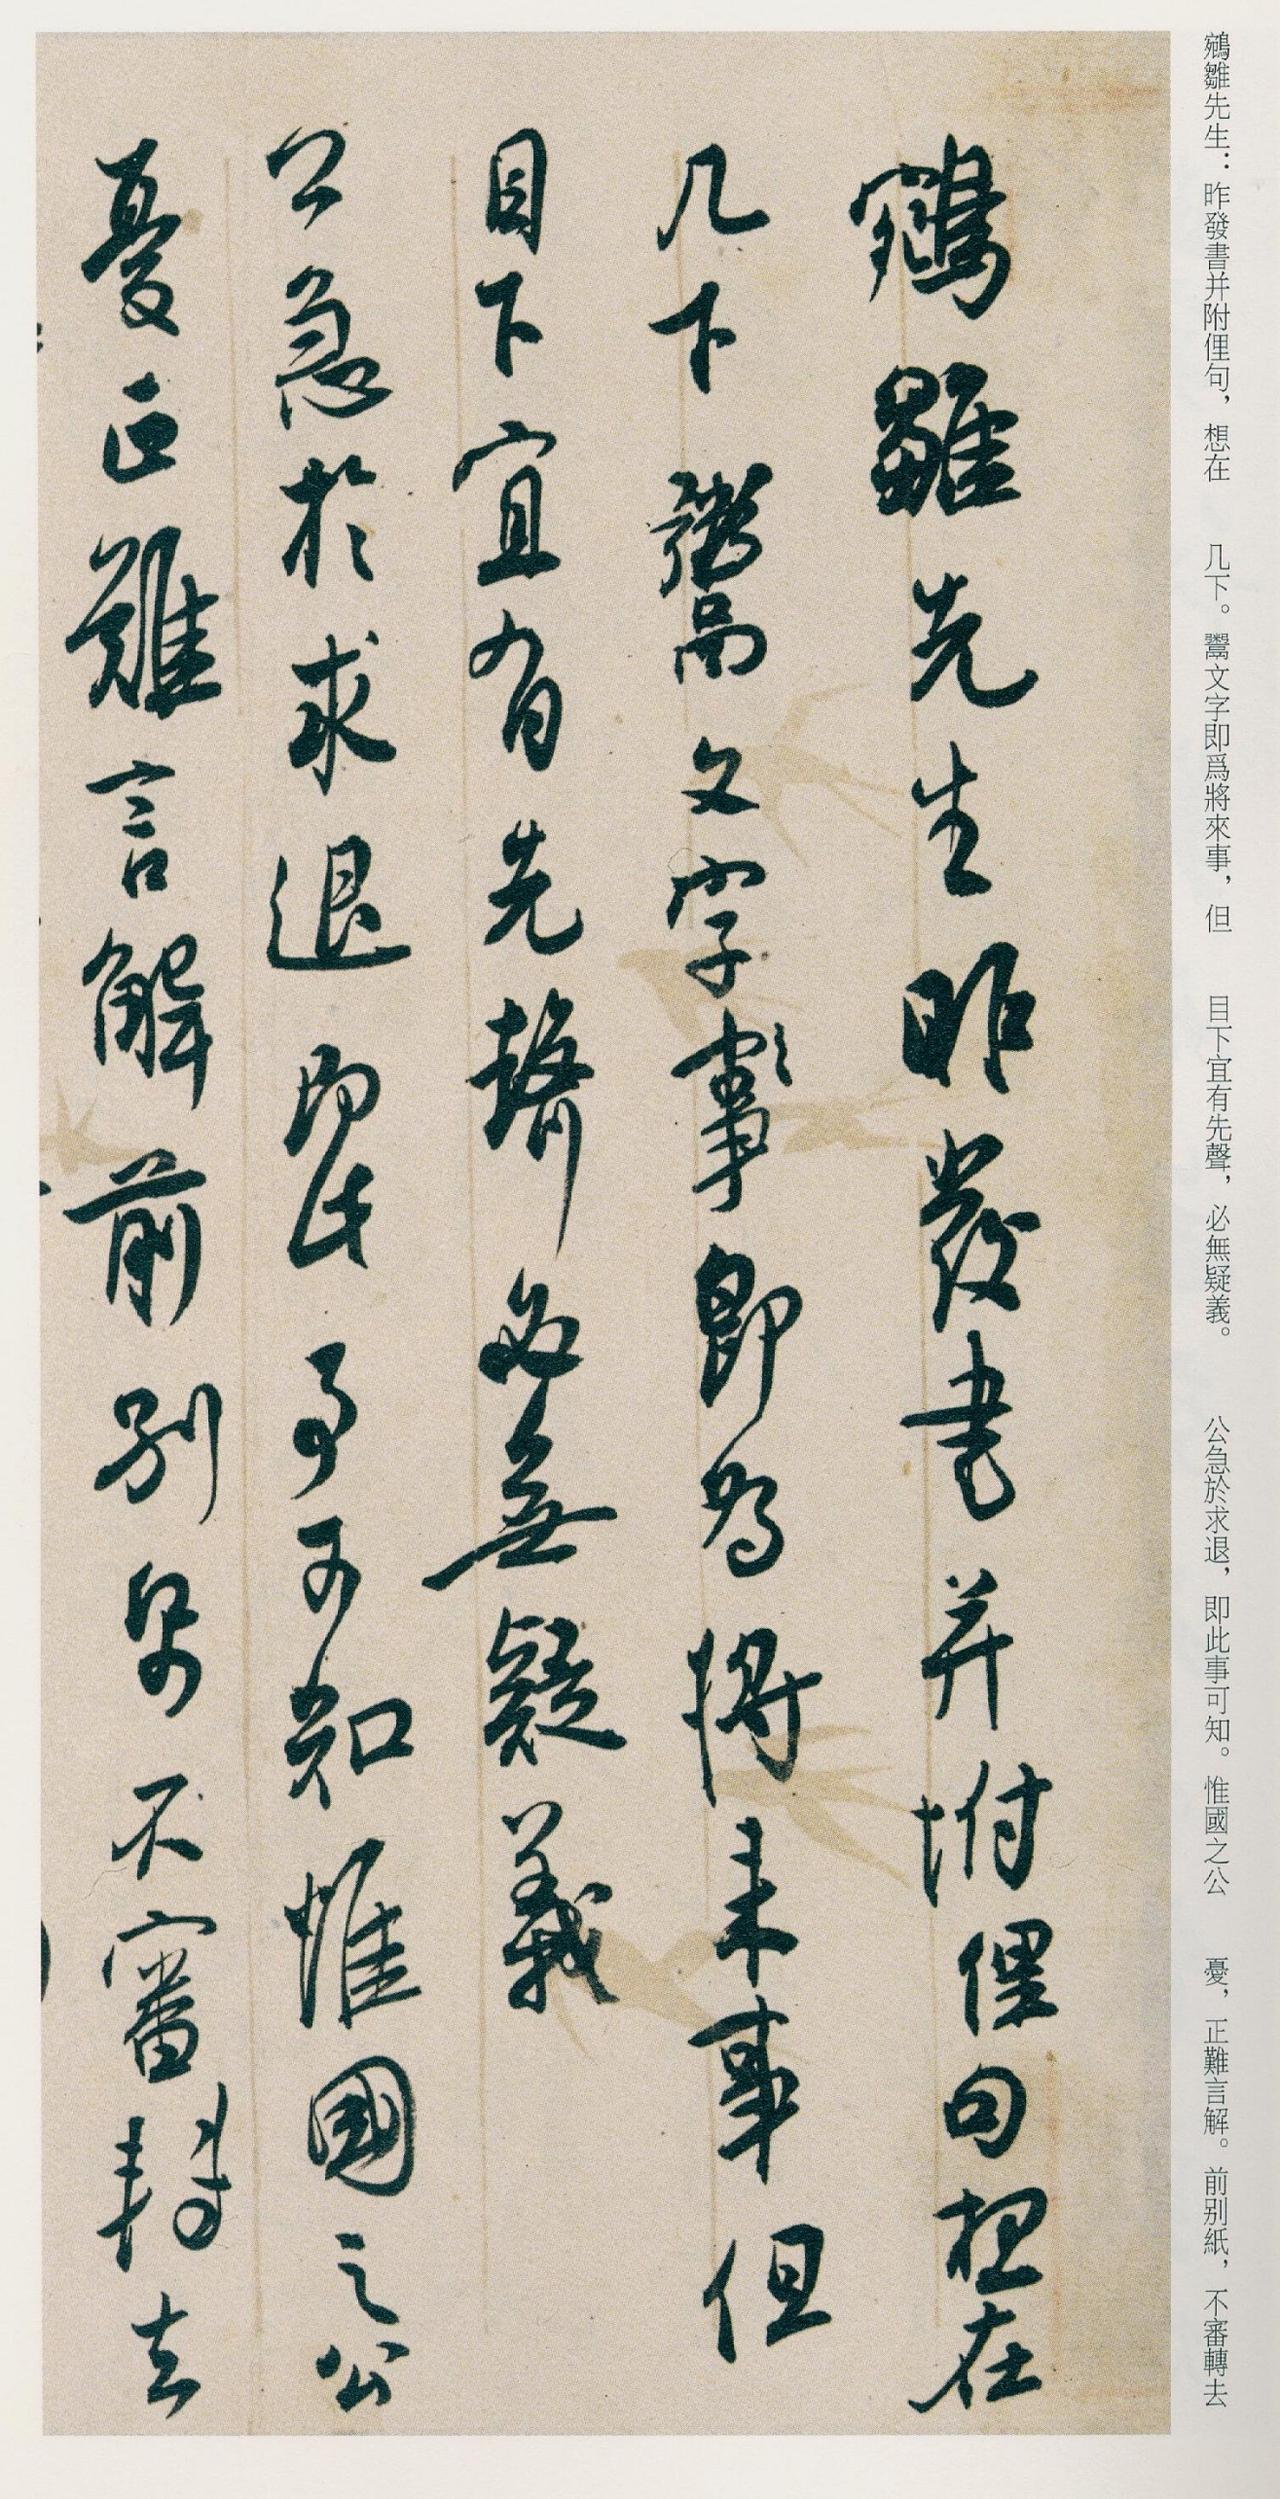 鵷雛先生：昨發書并附俚句，想在　几下。鬻文字即爲將來事，但　目下宜有先聲，必無疑義。　公急於求退，即此事可知。惟國之公　憂，正難言解。前别紙，不審轉去
鵷雛先生昨發書并附俚句想在
几下鬻文字事即爲將來事但
目下宜有先聲必無疑義
公急於求退即此事可知惟國之公
憂正難言解前别帋不審轉去